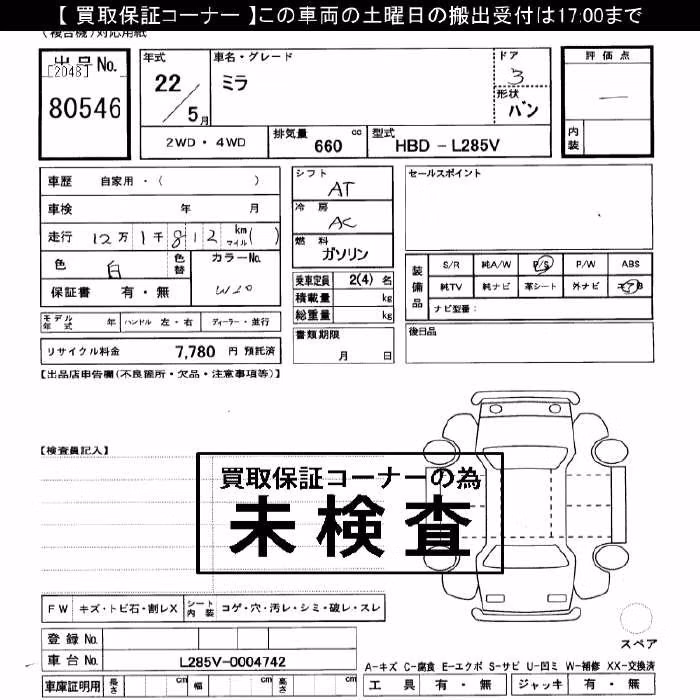 【 買取保証コーナー 】この車両の土曜日の搬出受付は17:00まで
(複合機)対応用紙
出品No.
[2048]
80546
年式
22/5月
車名・グレード
ミラ
ドア
3
形状
バン
評価点
―
内装
2WD・4WD
排気量 660 cc
型式 HBD－L285V
車歴 自家用・( )
車検 年 月
走行 12万1千812 km マイル( )
色 白 色替
カラーNo.
W20
保証書 有・無
シフト
AT
冷房
AC
燃料
ガソリン
乗車定員 2(4) 名
積載量 kg
総重量 kg
書類期限
月 日
セールスポイント
装備品
S/R 純A/W P/S P/W ABS
純TV 純ナビ 革シート 外ナビ エアB
ナビ型番:
後日品
モデル年式 年 ハンドル 左・右 ディーラー・並行
リサイクル料金 7,780 円 預託済
【出品店申告欄(不良箇所・欠品・注意事項等)】
【検査員記入】
買取保証コーナーの為
未検査
FW キズ・トビ石・割レX シート内装 コゲ・穴・汚レ・シミ・破レ・スレ
登録 No.
車台 No. L285V-0004742
車庫証明用 長さ cm 幅 cm 高さ cm
スペア
A-キズ C-腐食 E-エクボ S-サビ U-凹ミ W-補修 XX-交換済
工具 有・無 ジャッキ 有・無